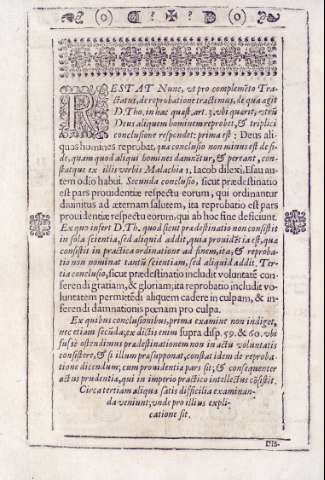 RESTAT Nunc, vt pro complemẽto Tra-
ctatus, de reprobatione tractemus, de qua agit
D. Tho. in hac quæst. art. 3. vbi quæret, vtrũ
Deus aliquem hominem reprobet, & triplici
conclusione respondet: prima est: Deus ali-
quos homines reprobat, quæ conclusio non minus est de fi-
de, quam quod aliqui homines damnẽtur, & pereant, con-
statque ex illis verbis Malachiæ 1, Iacob dilexi, Esau au-
tem odio habui. Secunda conclusio, sicut prædestinatio
est pars prouidentiæ respectu eorum, qui ordinantur
diuinitus ad æternam salutem, ita reprobatio est pars
prouidentiæ respectu eorum, qui ab hoc fine deficiunt.
Ex quo infert D. Th. quod sicut prædestinatio non consistit
in sola scientia, sed aliquid addit, quia prouidẽtia est, quæ
consistit in practica ordinatione ad finem, ita, & reproba-
tio non nominat tantũ scientiam, sed aliquid addit. Ter-
tia conclusio, sicut prædestinatio includit voluntatẽ con-
ferendi gratiam, & gloriam, ita reprobatio includit vo-
luntatem permittẽdi aliquem cadere in culpam, & in-
ferendi damnationis pœnam pro culpa.
Ex quibus conclusionibus, prima examine non indiget,
nec etiam secũda, ex dictis enim supra disp. 59. & 60. vbi
fusè ostendimus prædestinationem non in actu voluntatis
consistere, & si illum præsupponat, constat idem de reproba-
tione dicendum, cum prouidentiæ pars sit, & consequenter
actus prudentiæ, qui in imperio practico intellectus cõsistit.
Circa tertiam aliqua satis difficilia examinan-
da veniunt, vnde pro illius expli-
catione sit.
DIS-